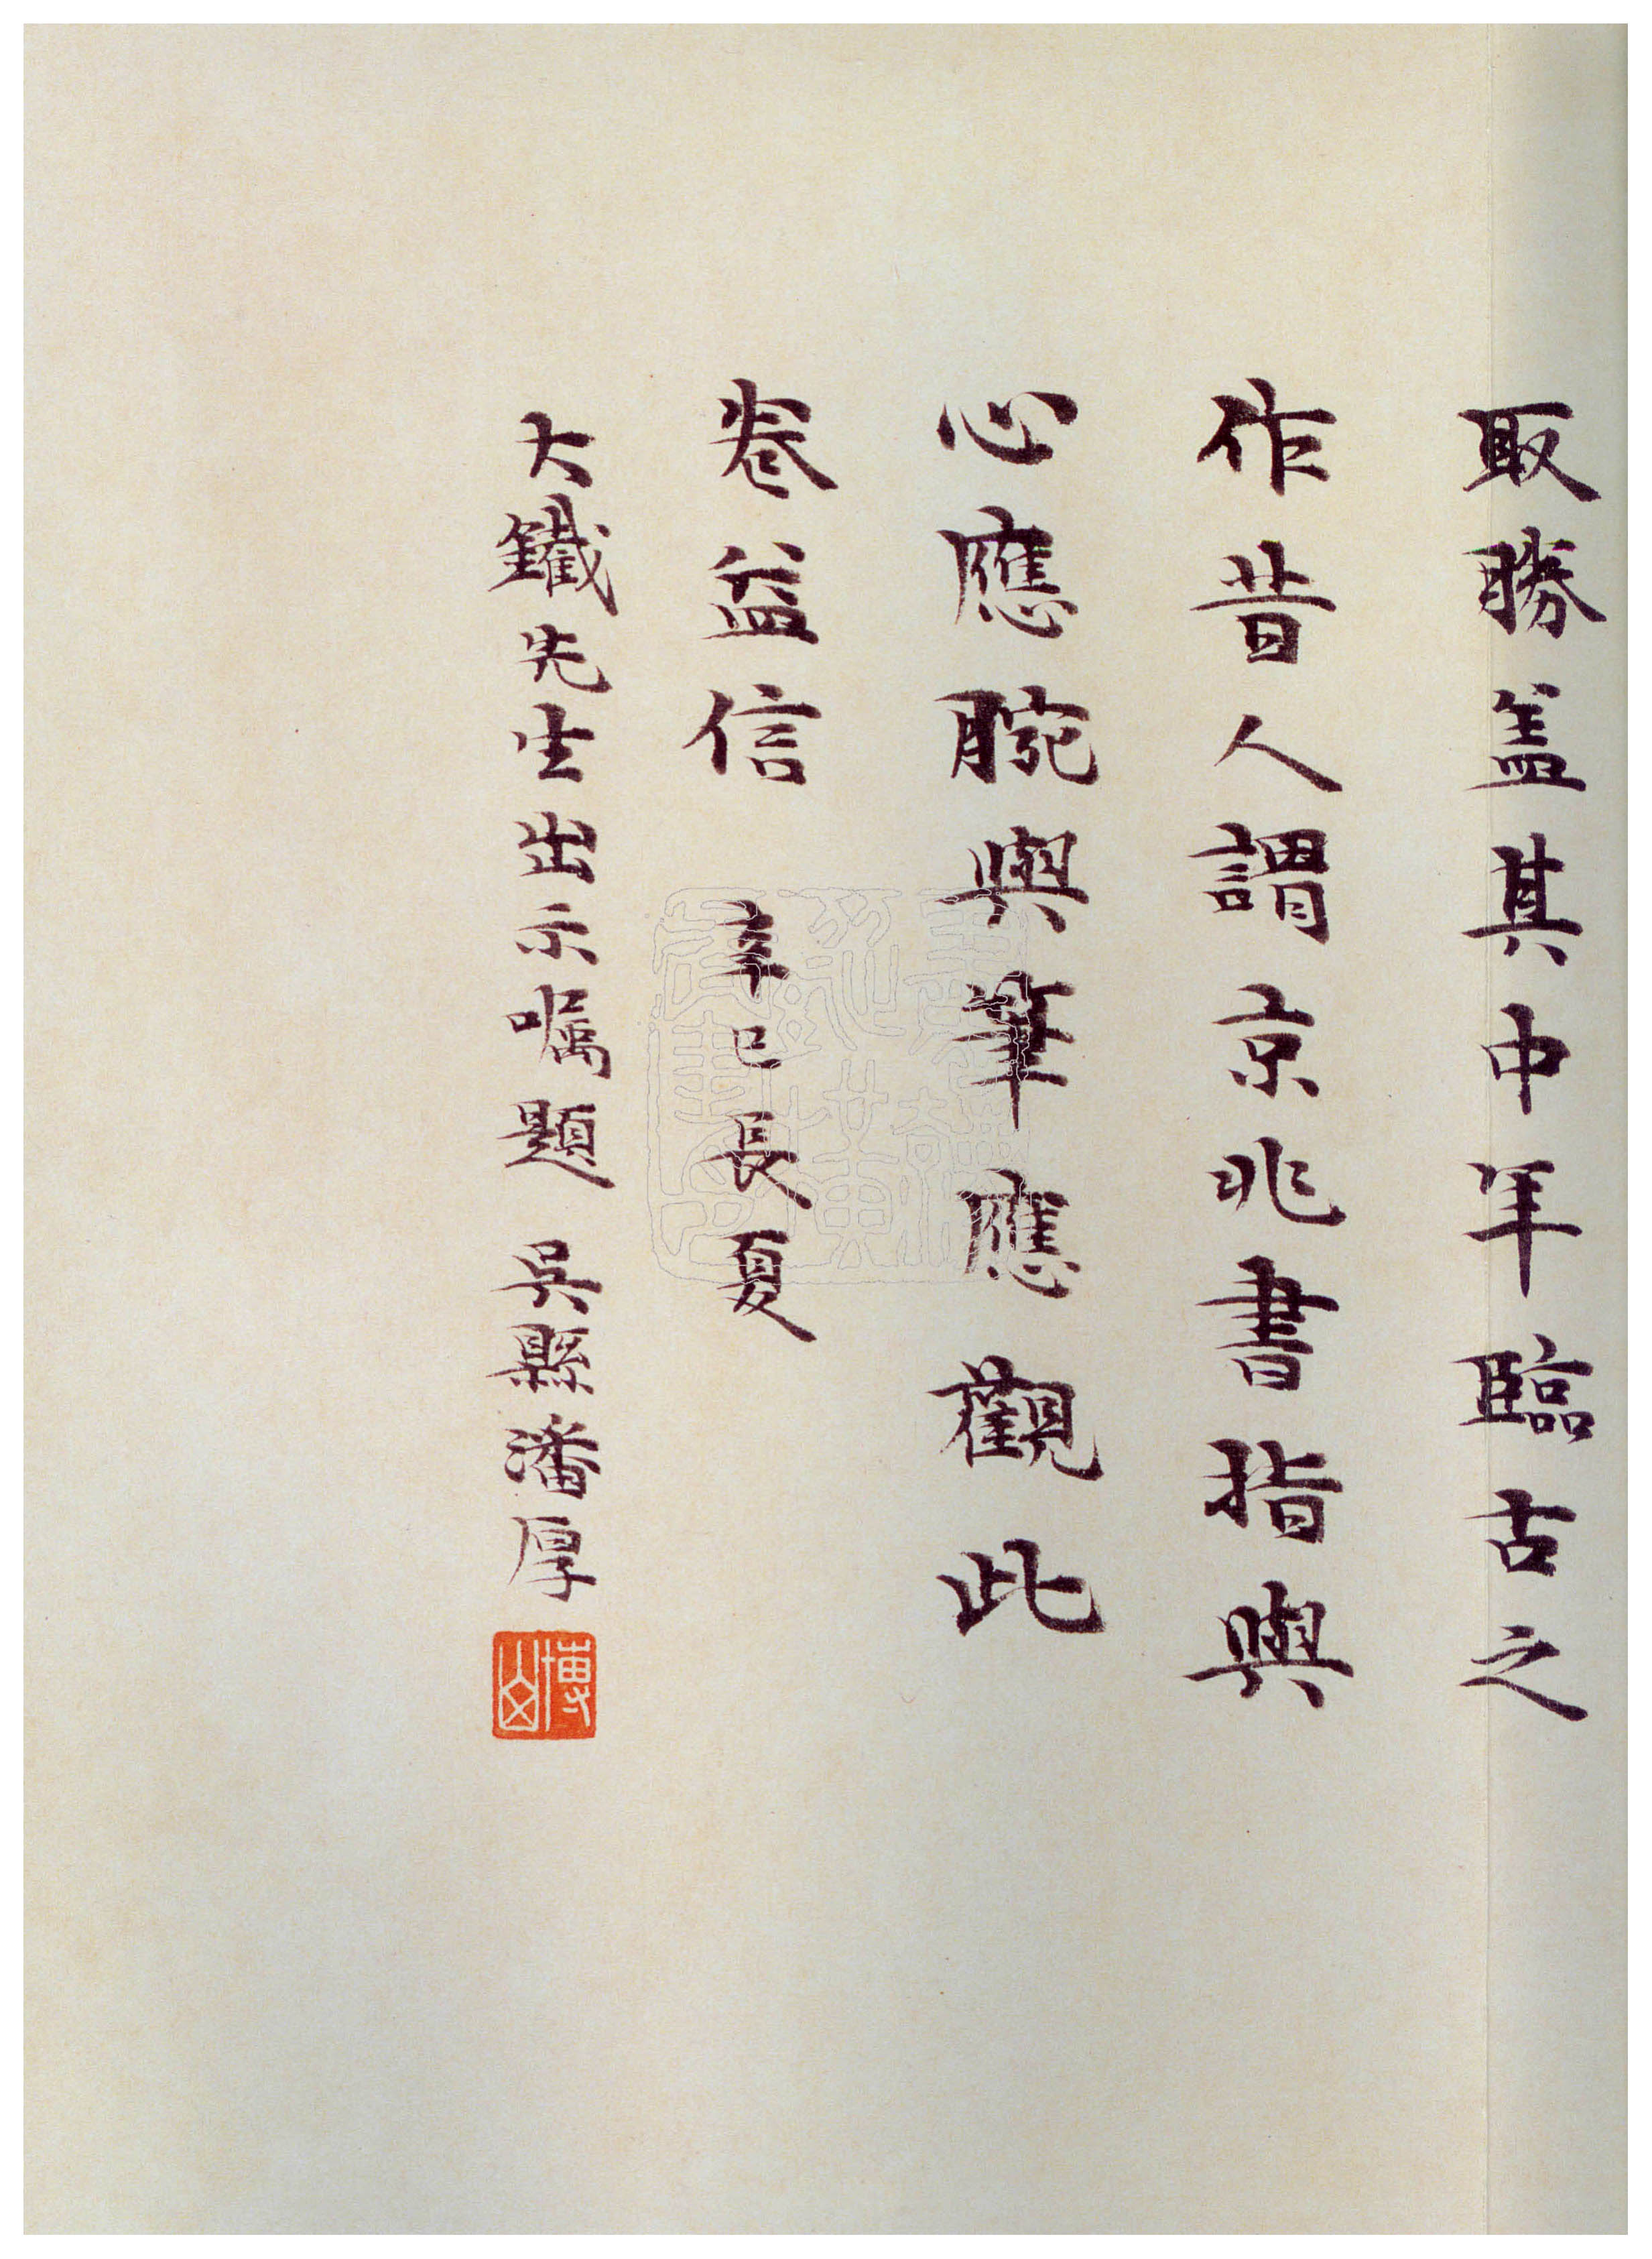 取勝盖其中年臨古之
作昔人謂京兆書指與
心應腕與筆應觀此
卷益信 辛巳長夏
大鐵先生出示嘱題 吳縣潘厚
博山